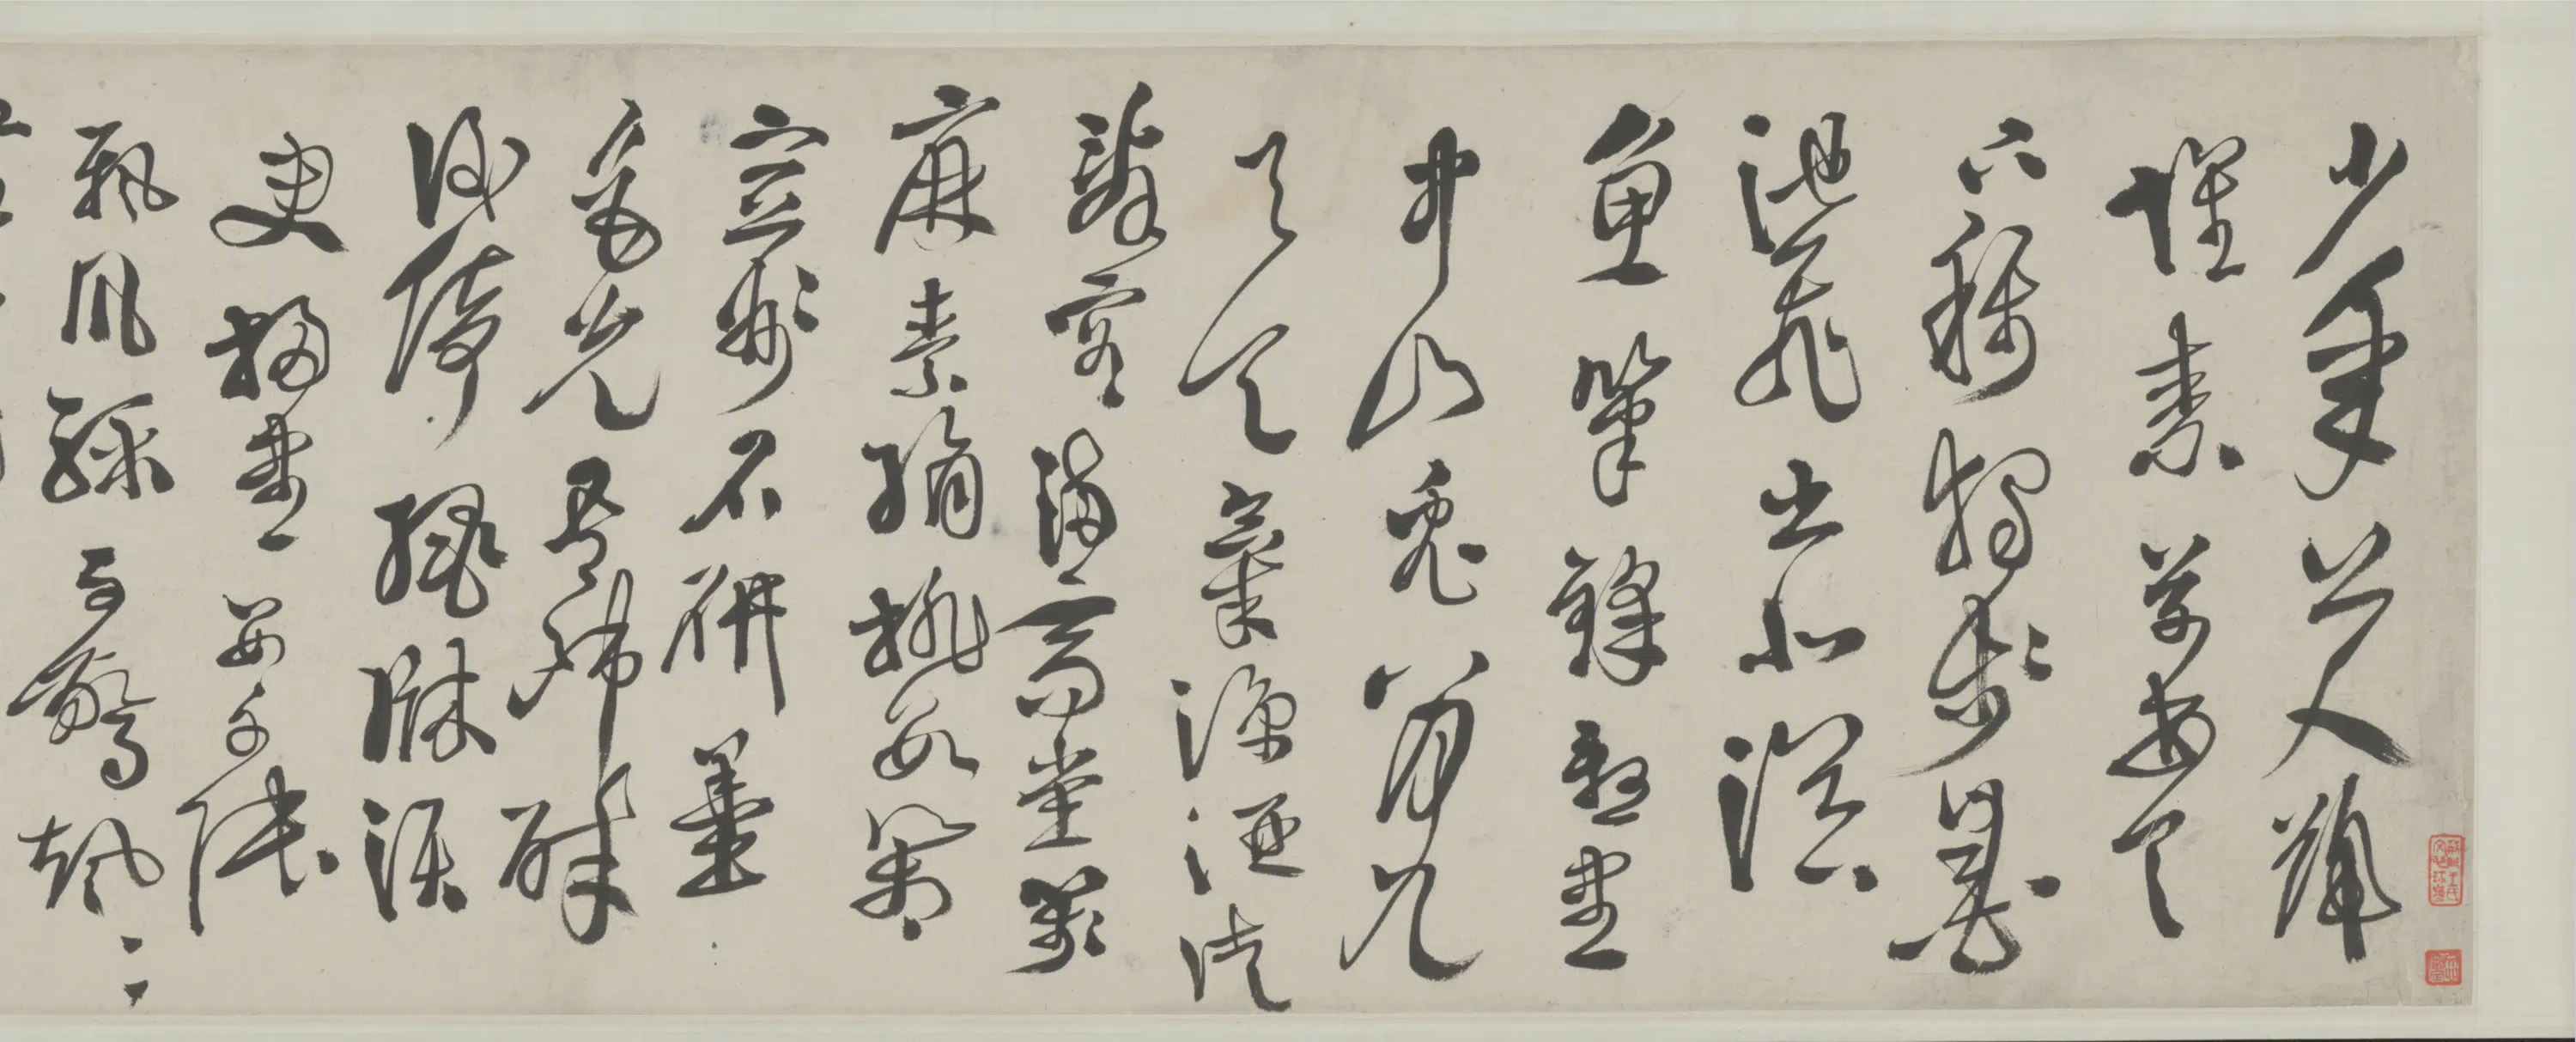 少年上人號
懷素草書天
下稱獨步墨
池飛出北溟
魚筆鋒殺盡
中山兔八月九
月天氣涼酒徒
辭客滿高堂箋
麻素絹排數箱
宣州石研墨
色光吾師醉
後倚繩牀須
臾掃盡數千張
飄風驟雨驚颯々